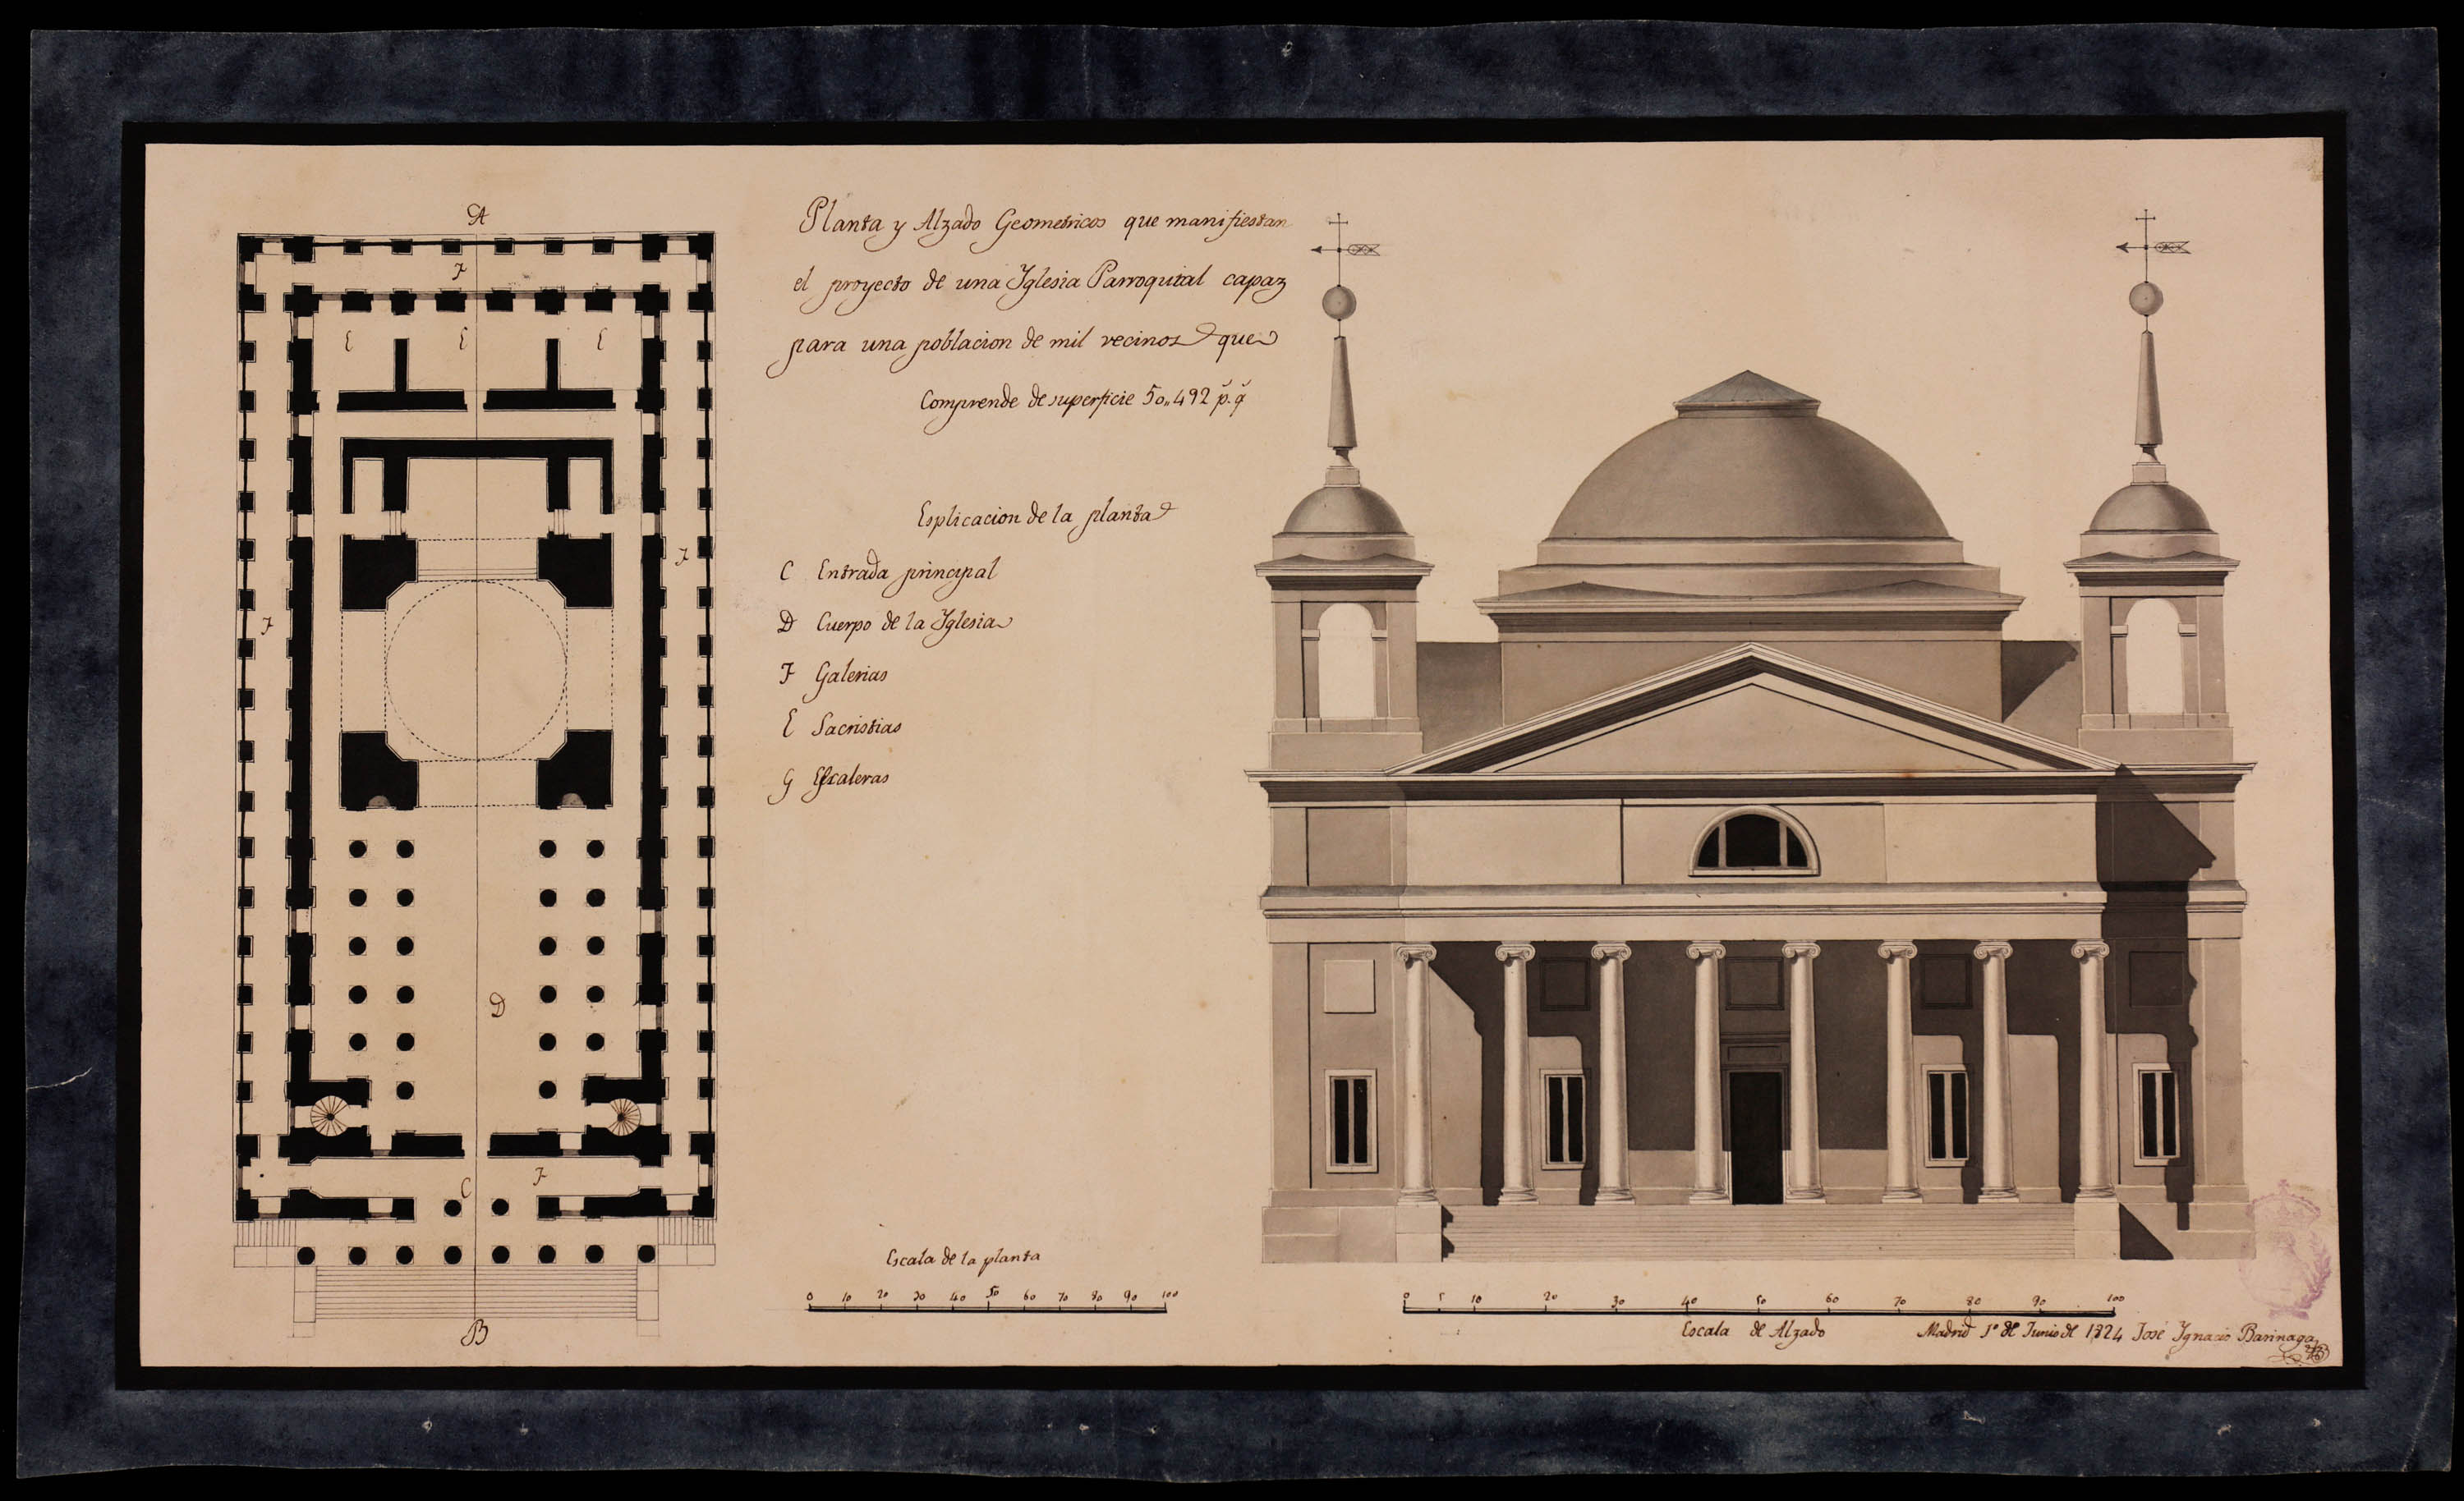 A
F
E E E
F
F
D
F
C
B
Planta y Alzado Geometricos que manifiestan
el proyecto de una Yglesia Parroquial capaz
para una poblacion de mil vecinos que
Comprende de superficie 50,,492 p.s q.s
Esplicacion de la planta
C Entrada principal
D Cuerpo de la Yglesia
F Galerias
E Sacristias
G Escaleras
Escala de la planta
0 10 20 30 40 50 60 70 80 90 100
0 5 10 20 30 40 50 60 70 80 90 100
Escala de Alzado
Madrid 1º de Junio de 1824 José Ygnacio Barinaga